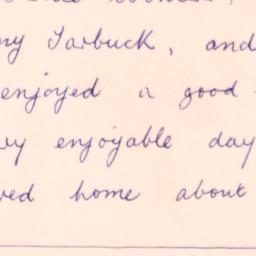 ny Tarbuck, and
enjoyed a good
enjoyable day
home about